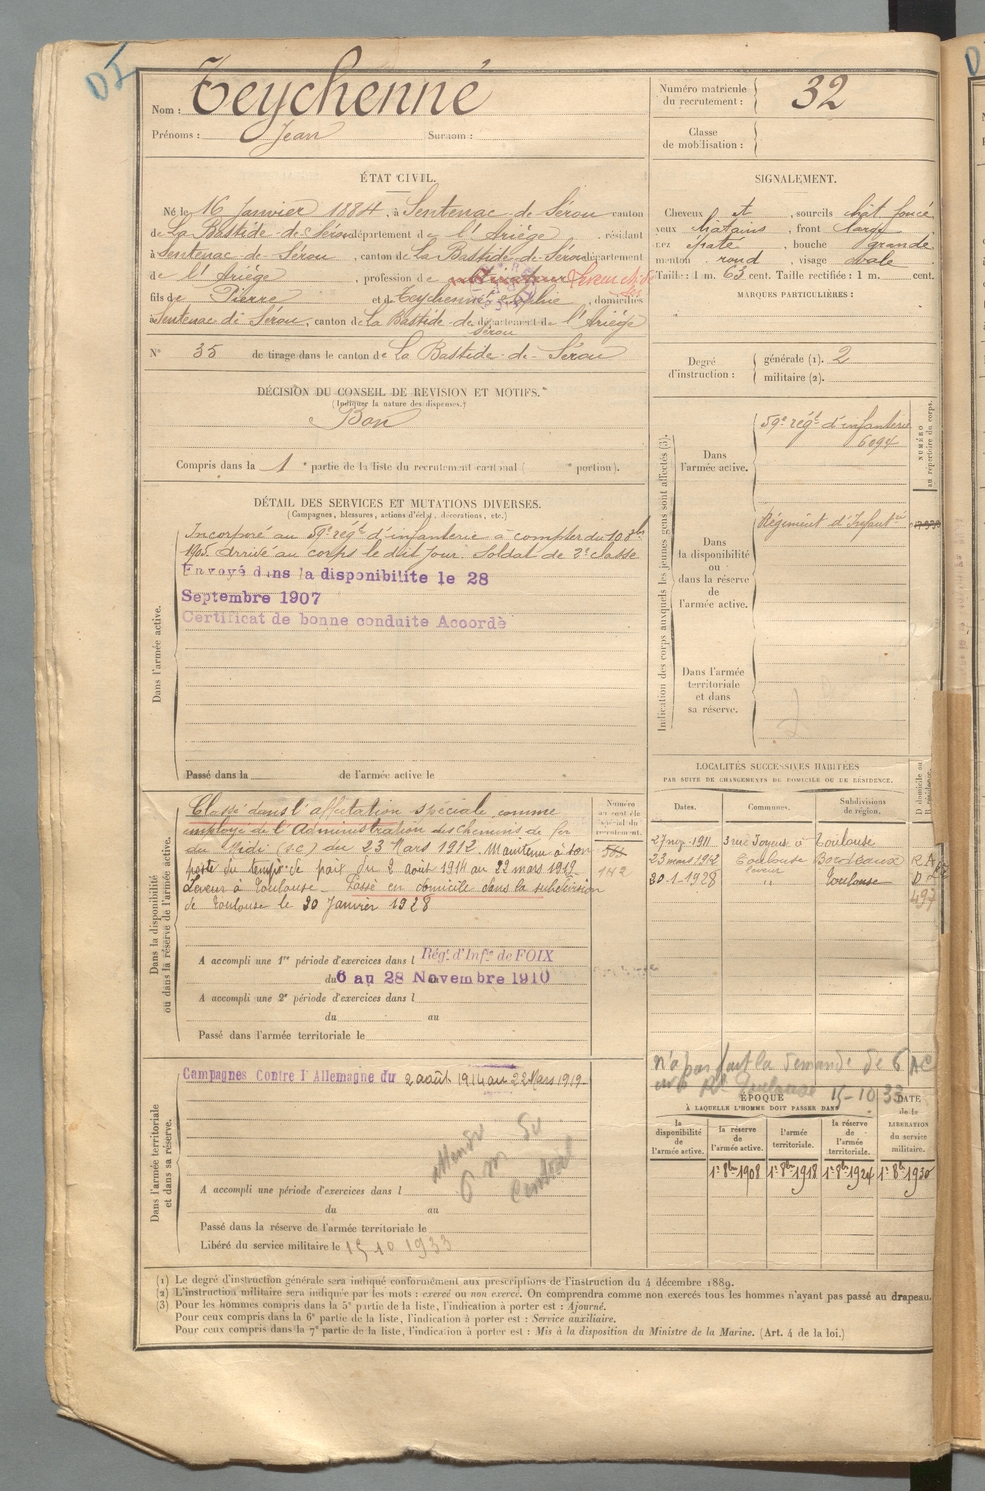 Nom : Teychenné
Prénoms : Jean Surnom :
Numéro matricule du recrutement : 32
Classe de mobilisation :
ÉTAT CIVIL.
Né le 16 Janvier 1884, à Sentenac-de-Sérou canton
de La Bastide-de-Sérou département de l'Ariège, résidant
à Sentenac-de-Sérou, canton de La Bastide-de-Sérou département
de l'Ariège, profession de cultivateur
fils de Pierre et de Teychenné Sophie, domiciliés
à Sentenac de Sérou, canton de La Bastide-de-Sérou département de l'Ariège
N° 35 de tirage dans le canton de La Bastide-de-Sérou
SIGNALEMENT.
Cheveux et, sourcils chât foncé
yeux châtains, front large
nez épaté, bouche grande
menton rond, visage ovale
Taille : 1 m. 63 cent. Taille rectifiée : 1 m. cent.
MARQUES PARTICULIÈRES :
Degré d'instruction : générale (1). 2
militaire (2).
DÉCISION DU CONSEIL DE REVISION ET MOTIFS.
(Indiquer la nature des dispenses.)
Bon
Compris dans la 1e partie de la liste du recrutement cantonal ( e portion).
DÉTAIL DES SERVICES ET MUTATIONS DIVERSES.
(Campagnes, blessures, actions d'éclat, décorations, etc.)
Dans l'armée active.
Incorporé au 59e régt d'infanterie à compter du 10 8bre
1905. Arrivé au corps le dit jour. Soldat de 2e classe
Envoyé dans la disponibilite le 28
Septembre 1907
Certificat de bonne conduite Accordé
Passé dans la de l'armée active le
Indication des corps auxquels les jeunes gens sont affectés (3).
NUMÉRO au répertoire du corps.
Dans l'armée active.
59e régt d'infanterie
6094
Dans la disponibilité ou dans la réserve de l'armée active.
Régiment d'Infantie
Dans l'armée territoriale et dans sa réserve.
Dans la disponibilité ou dans la réserve de l'armée active.
Numéro au contrôle spécial du recrutement.
Classé dans l'affectation spéciale comme
employé de l'Administration des chemins de fer
du Midi (SC) du 23 Mars 1912. Maintenu à son
poste du temps de paix du 2 août 1914 au 22 mars 1919.
Leveur à Toulouse. Passé en domicile dans la subdivision
de Toulouse le 30 Janvier 1928
142
A accompli une 1re période d'exercices dans l Régt d'Infie de FOIX
du 6 au 28 Novembre 1910
A accompli une 2e période d'exercices dans l
du au
Passé dans l'armée territoriale le
LOCALITÉS SUCCESSIVES HABITÉES
PAR SUITE DE CHANGEMENTS DE DOMICILE OU DE RÉSIDENCE.
Dates. Communes. Subdivisions de région. D domicile ou R résidence.
1911 3 rue Joyeux à Toulouse
23 mars 1912 Toulouse Bordeaux R
leveur
30-1-1928 " Toulouse D
497
n'a pas fait la demande de
Toulouse 15-10 33
Dans l'armée territoriale et dans sa réserve.
Campagnes Contre l'Allemagne du 2 août 1914 au 22 Mars 1919.
A accompli une période d'exercices dans l
du au
Passé dans la réserve de l'armée territoriale le
Libéré du service militaire le 15 10 1933
ÉPOQUE
À LAQUELLE L'HOMME DOIT PASSER DANS
DATE de la LIBÉRATION du service militaire.
la disponibilité de l'armée active.
la réserve de l'armée active.
l'armée territoriale.
la réserve de l'armée territoriale.
1er 8bre 1908 1er 8bre 1918 1er 8bre 1924 1er 8bre 1930
(1) Le degré d'instruction générale sera indiqué conformément aux prescriptions de l'instruction du 4 décembre 1889.
(2) L'instruction militaire sera indiquée par les mots : exercé ou non exercé. On comprendra comme non exercés tous les hommes n'ayant pas passé au drapeau.
(3) Pour les hommes compris dans la 5e partie de la liste, l'indication à porter est : Ajourné.
Pour ceux compris dans la 6e partie de la liste, l'indication à porter est : Service auxiliaire.
Pour ceux compris dans la 7e partie de la liste, l'indication à porter est : Mis à la disposition du Ministre de la Marine. (Art. 4 de la loi.)